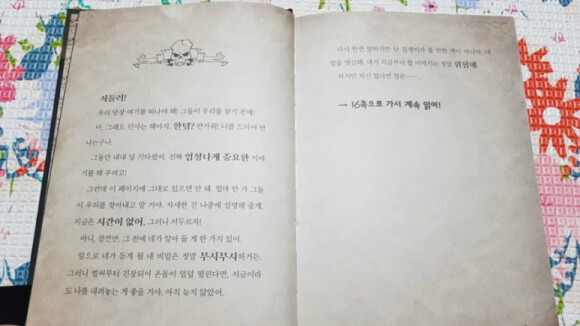 서둘러!
우리 당장 여기를 떠나야 해! 그들이 우리를 찾기 전에!
아, 그래도 인사는 해야지. 안녕? 반가워! 너를 드디어 만
나는구나.
그동안 내내 널 기다렸어. 진짜 엄청나게 중요한 이야
기를 해 주려고!
그런데 이 페이지에 그대로 있으면 안 돼. 얼마 안 가 그들
이 우리를 찾아내고 말 거야. 자세한 건 나중에 설명해 줄게.
지금은 시간이 없어. 그러니 서두르자!
아니, 잠깐만. 그 전에 네가 알아 둘 게 한 가지 있어.
앞으로 네가 듣게 될 내 비밀은 정말 무시무시하거든.
그러니 벌써부터 긴장되어 온몸이 덜덜 떨린다면, 지금이라
도 나를 내려놓는 게 좋을 거야. 아직 늦지 않았어.
다시 한번 말하지만 난 겁쟁이가 볼 만한 책이 아니야. 내
말을 명심해. 내가 지금부터 할 이야기는 정말 위험해.
하지만 자신 있다면 일은……
→ 16쪽으로 가서 계속 읽어!